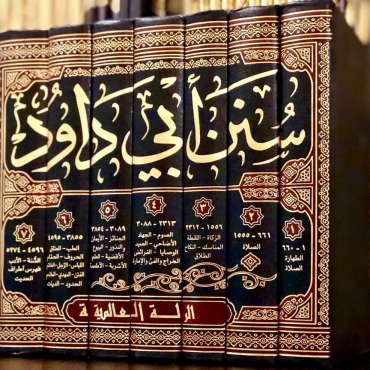 سنن أبي داود
١
١ - ٦٦٠
الطهارة
الصلاة
٢
٦٦١ - ١٥٥٥
الصلاة
٣
١٥٥٦ - ٢٣١٢
الزكاة - اللقطة
المناسك - النكاح
الطلاق
٤
٢٣١٣ - ٣٠٨٨
الصوم - الجهاد
الأضاحي - الصيد
الوصايا - الفرائض
الخراج والفيء والإمارة
٥
٣٠٨٩ - ٣٨٥٤
الجنائز - الأيمان
والنذور - البيوع
الأقضية - العلم
الأشربة - الأطعمة
٦
٣٨٥٥ - ٤٥٩٥
الطب - العتاق
الحروف - الحمام
اللباس - الترجل - الخاتم
الفتن - المهدي - الملاحم
الحدود - الديات
٧
٤٥٩٦ - ٥٢٧٤
السُّنة - الأدب
فهرس أطراف
الحديث
الرسالة العالمية